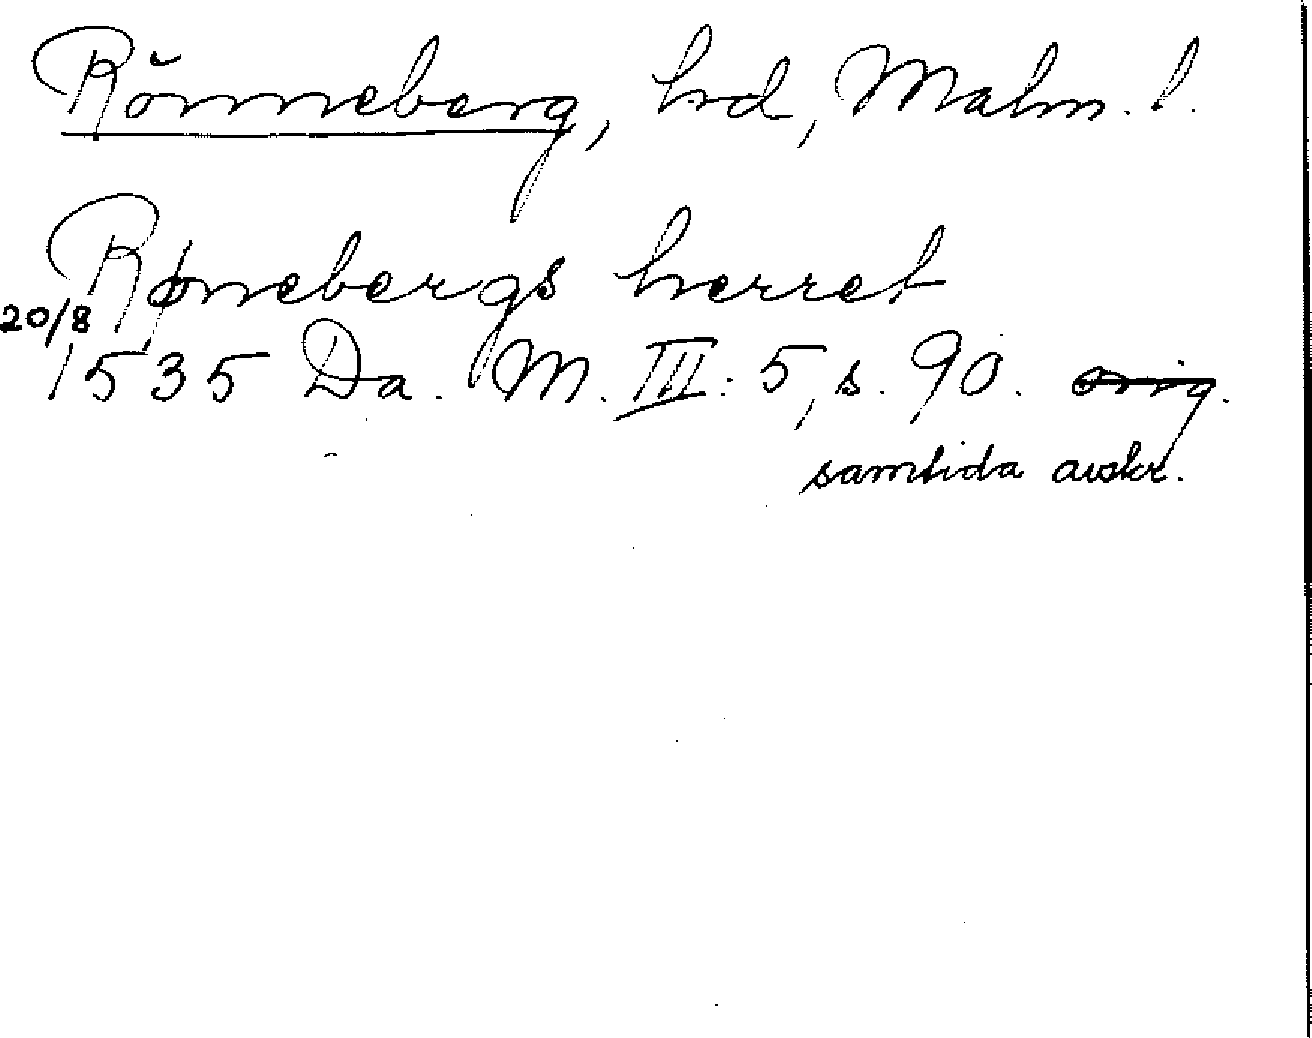 Rönneberg, hd, Malm. l.
Rønebergs herret
20/8
1535 Da. M. III: 5, s. 90. orig.
samtida avskr.